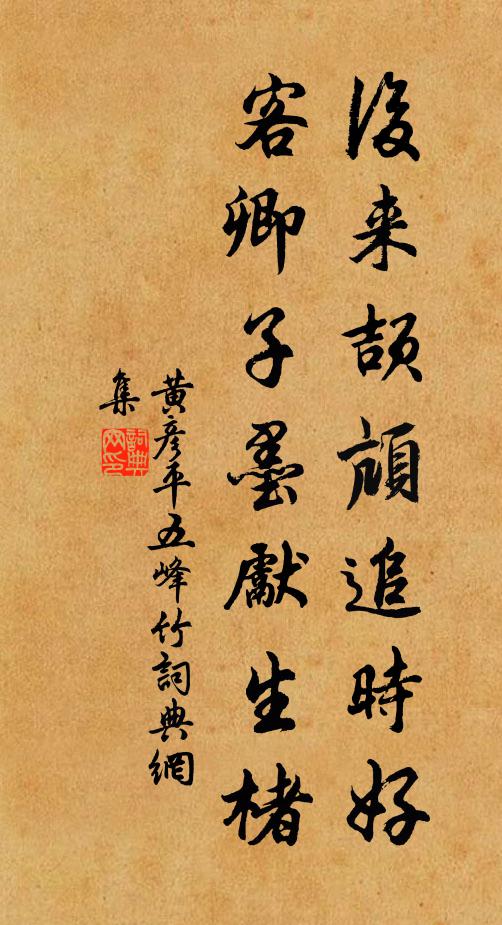 後来頡頏追時好
客卿子墨獻生楮
黄彦平五峰竹詞典網
集
詞典网印